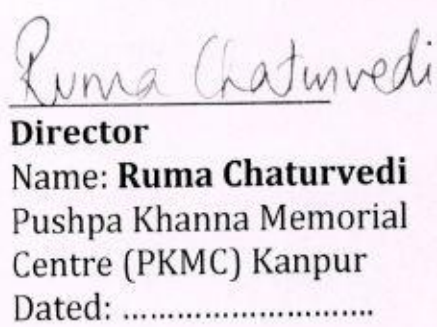 Ruma Chaturvedi
Director
Name: Ruma Chaturvedi
Pushpa Khanna Memorial
Centre (PKMC) Kanpur
Dated: ..............................